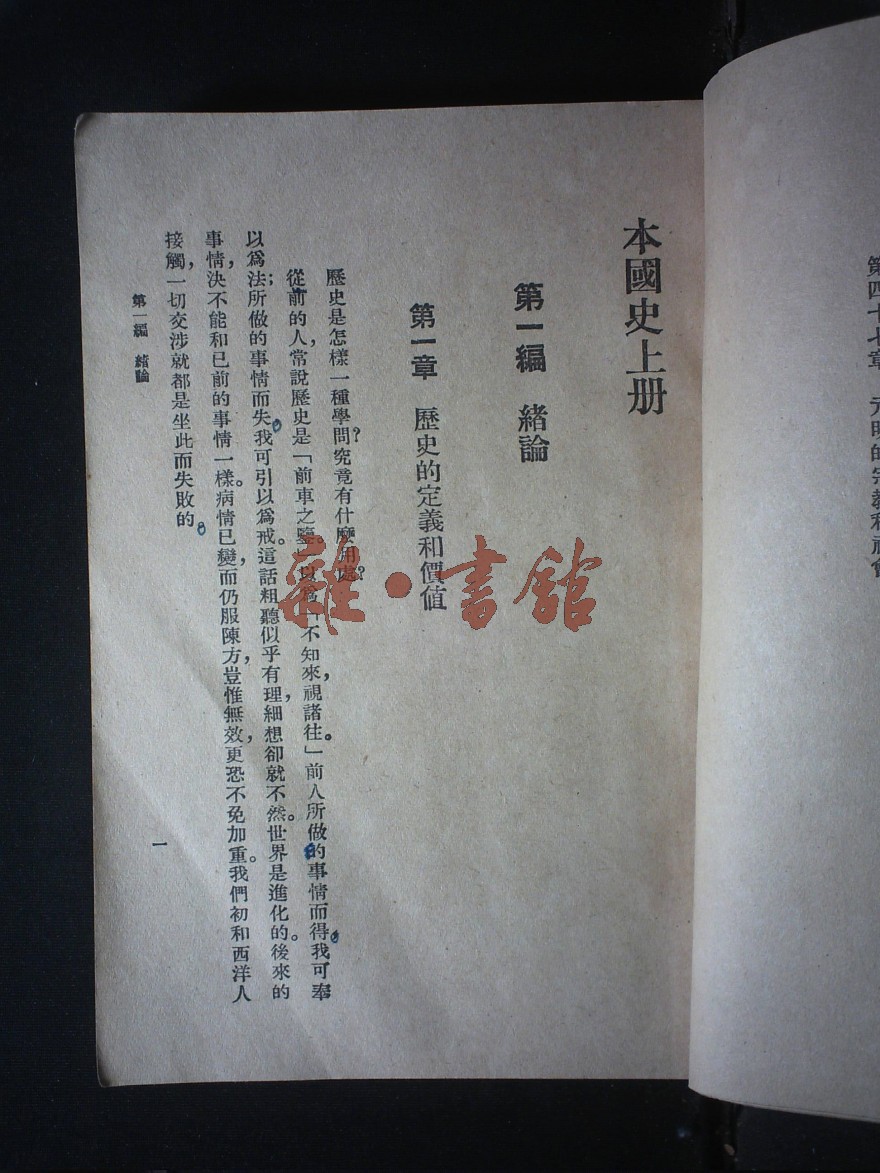 第四十七章　元明的宗教和社會
本國史上册
第一編　緒論
第一章　歷史的定義和價值
歷史是怎樣一種學問？究竟有什麼用處？
從前的人，常說歷史是「前車之鑒。」以爲「不知來，視諸往。」前人所做的事情而得，我可奉
以爲法；所做的事情而失，我可引以爲戒。這話粗聽似乎有理，細想卻就不然。世界是進化的。後來的
事情，決不能和已前的事情一樣。病情已變，而仍服陳方，豈惟無效，更恐不免加重。我們初和西洋人
接觸，一切交涉就都是坐此而失敗的。
第一編　緒論
一
雜·書館